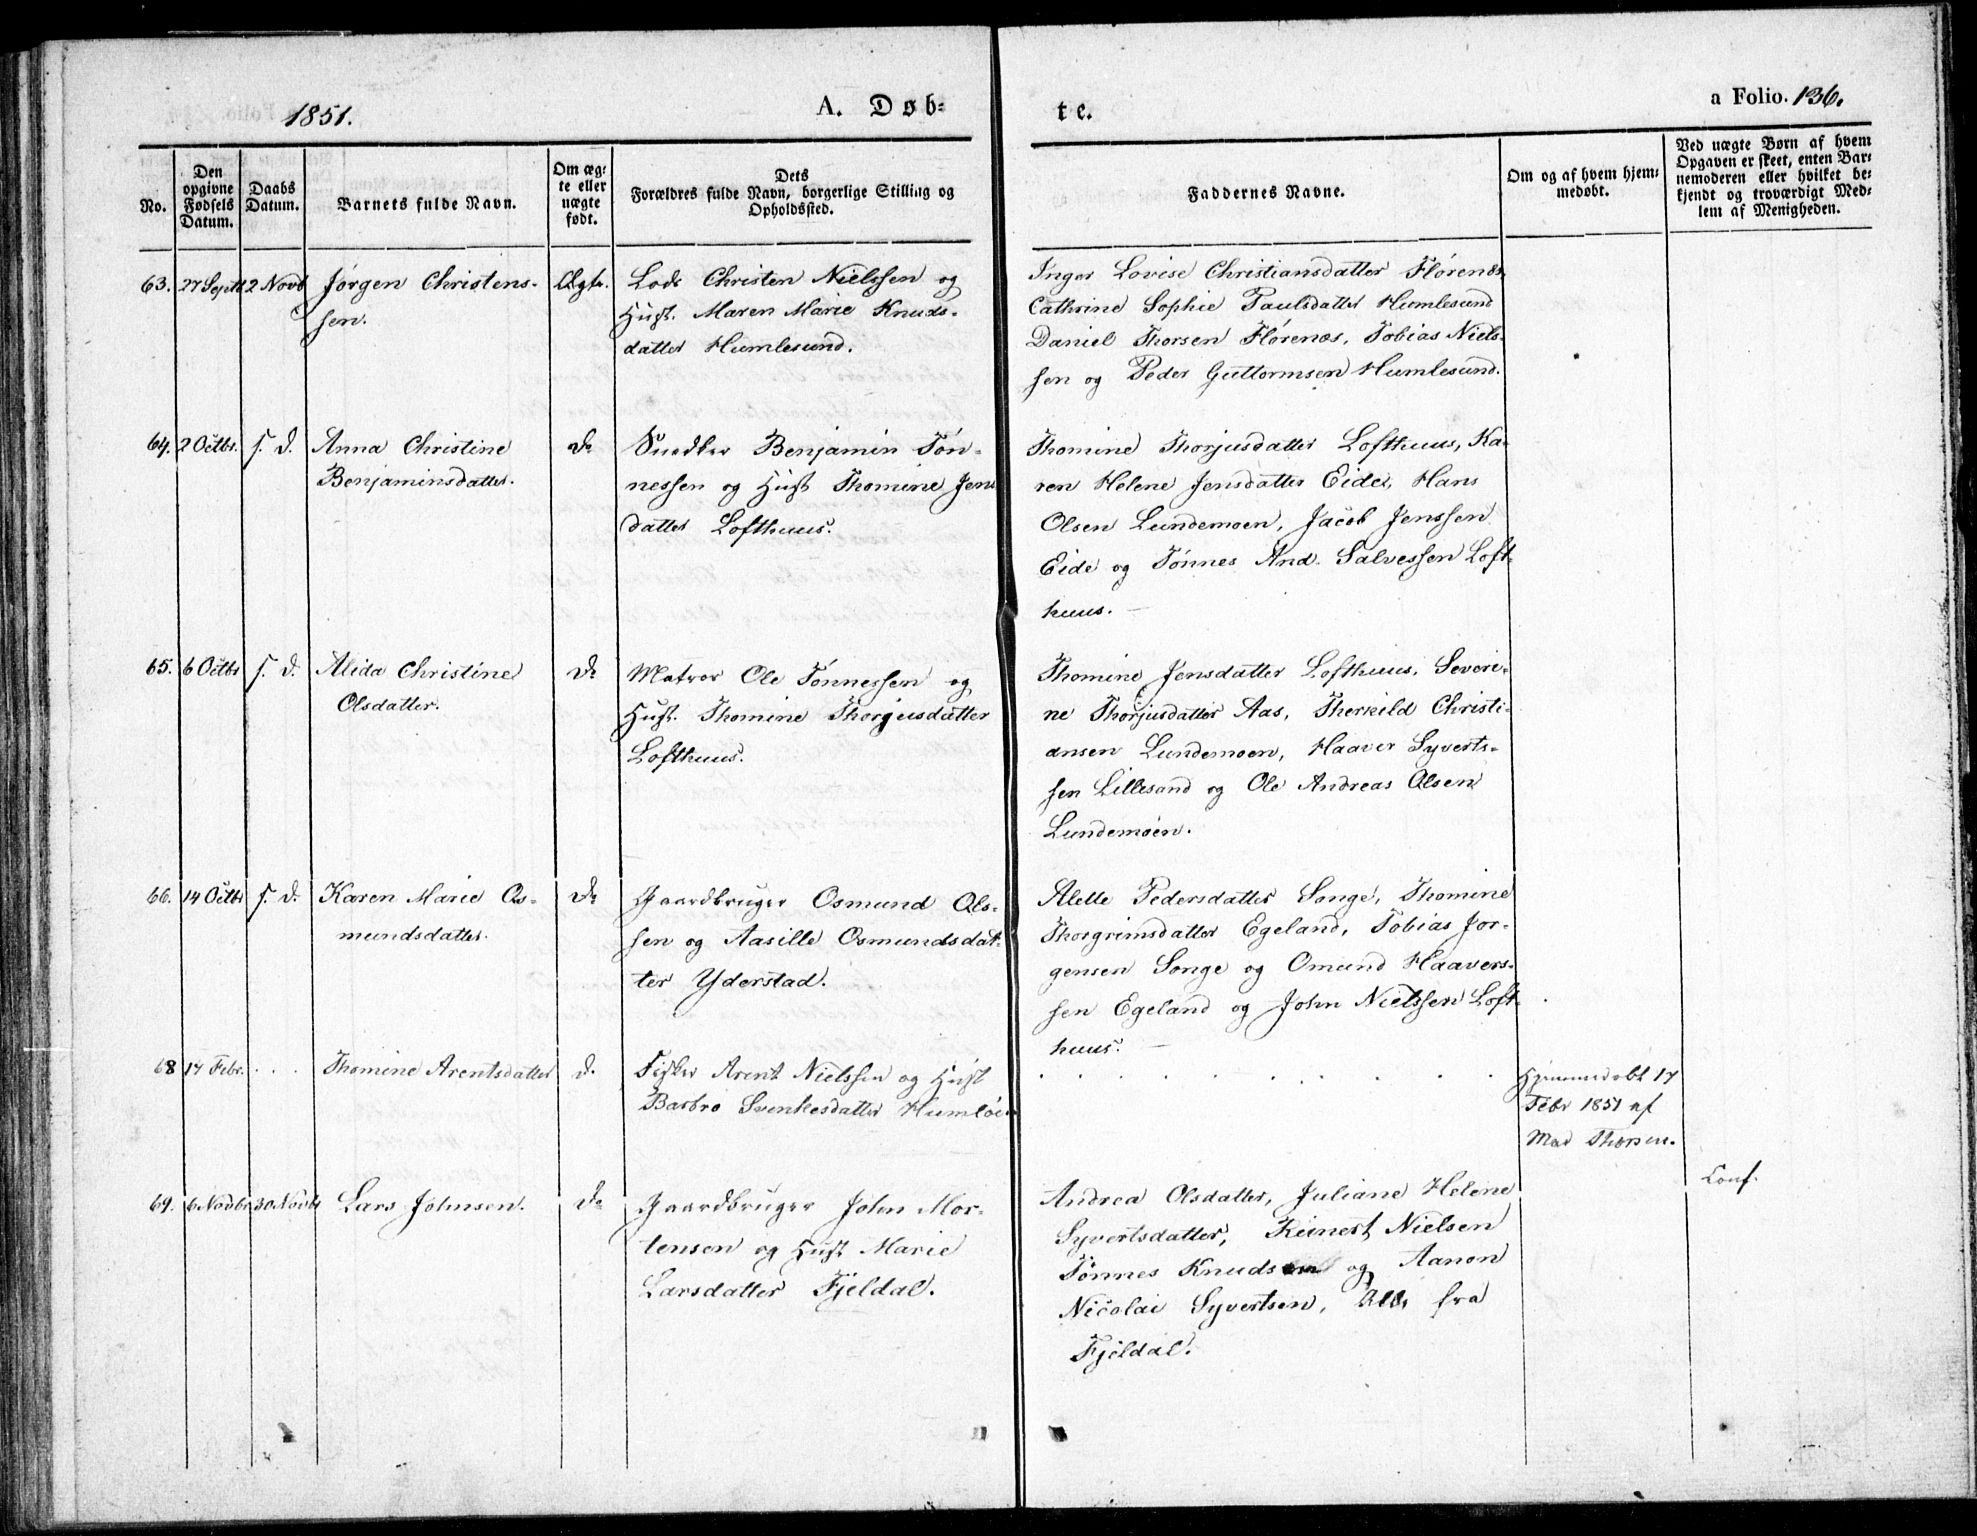 1851.
A. Døb-
te.
a Folio. 136.
No.
Den
opgivne
Fødsels
Datum.
Daabs
Datum.
Barnets fulde Navn.
Om æg-
te eller
uægte
født.
Dets
Forældres fulde Navn, borgerlige Stilling og
Opholdssted.
Faddernes Navne.
Om og af hvem hjem-
medøbt.
Ved uægte Børn af hvem
Opgaven er skeet, enten Bar-
nemoderen eller hvilket be-
kjendt og troværdigt Med-
lem af Menigheden.
63. 27 Septb 2 Novb Jørgen Christens-
sen.
Ægte.
Lods Christen Nielssen og
Hust. Maren Marie Knuds-
datter Humlesund.
Inger Lovise Christiansdatter Flørenæs,
Cathrine Sophie Paulsdatter Humlesund
Daniel Thorsen Flørenæs, Tobias Niels-
sen og Peder Guttormsen Humlesund.
64. 2 Octbr. s. D. Anna Christine
Benjaminsdatter.
Do
Snedker Benjamin Tøn-
nessen og Hust Thomine Jens
datter Lofthuus.
Thomine Thorjusdatter Lofthuus, Ka-
ren Helene Jensdatter Eide, Hans
Olsen Lundemoen, Jacob Jenssen
Eide og Tønnes And. Salvessen Loft-
huus. —
65. 6 Octbr s. D. Alida Christine
Olsdatter.
Do
Matros Ole Tønnessen og
Hust. Thomine Thorjusdatter
Lofthuus.
Thomine Jensdatter Lofthuus, Severi-
ne Thorjusdatter Aas, Therkild Christi-
ansen Lundemoen, Haaver Syverts-
sen Lillesand og Ole Andreas Olsen
Lundemoen.
66. 14 Octbr s. D. Karen Marie Os-
mundsdatter.
Do
Gaardbruger Osmund Ols-
sen og Aasille Osmundsdat-
ter Yderstad.
Alette Pedersdatter Songe, Thomine
Thorgrimsdatter Egeland, Tobias Jør-
gensen Songe og Omund Haavers-
sen Egeland og John Nielssen Loft-
huus.
68 17 Febr. . . . Thomine Arentsdatter
D.
Fisker Arent Nielssen og Hust
Barbro Svenkesdatter Humløen
Hjemmedøbt 17
Febr 1851 af
Mad Thorsen.
69. 6 Novbr 30 Novbr Lars Johnsen.
Do
Gaardbruger John Mor-
tensen og Hust Marie
Larsdatter Fjeldal.
Andrea Olsdatter, Juliane Helene
Syvertsdatter, Reinert Nielsen
Tønnes Knudsen og Aanon
Nicolai Syvertsen, Alle fra
Fjeldal.
Conf.